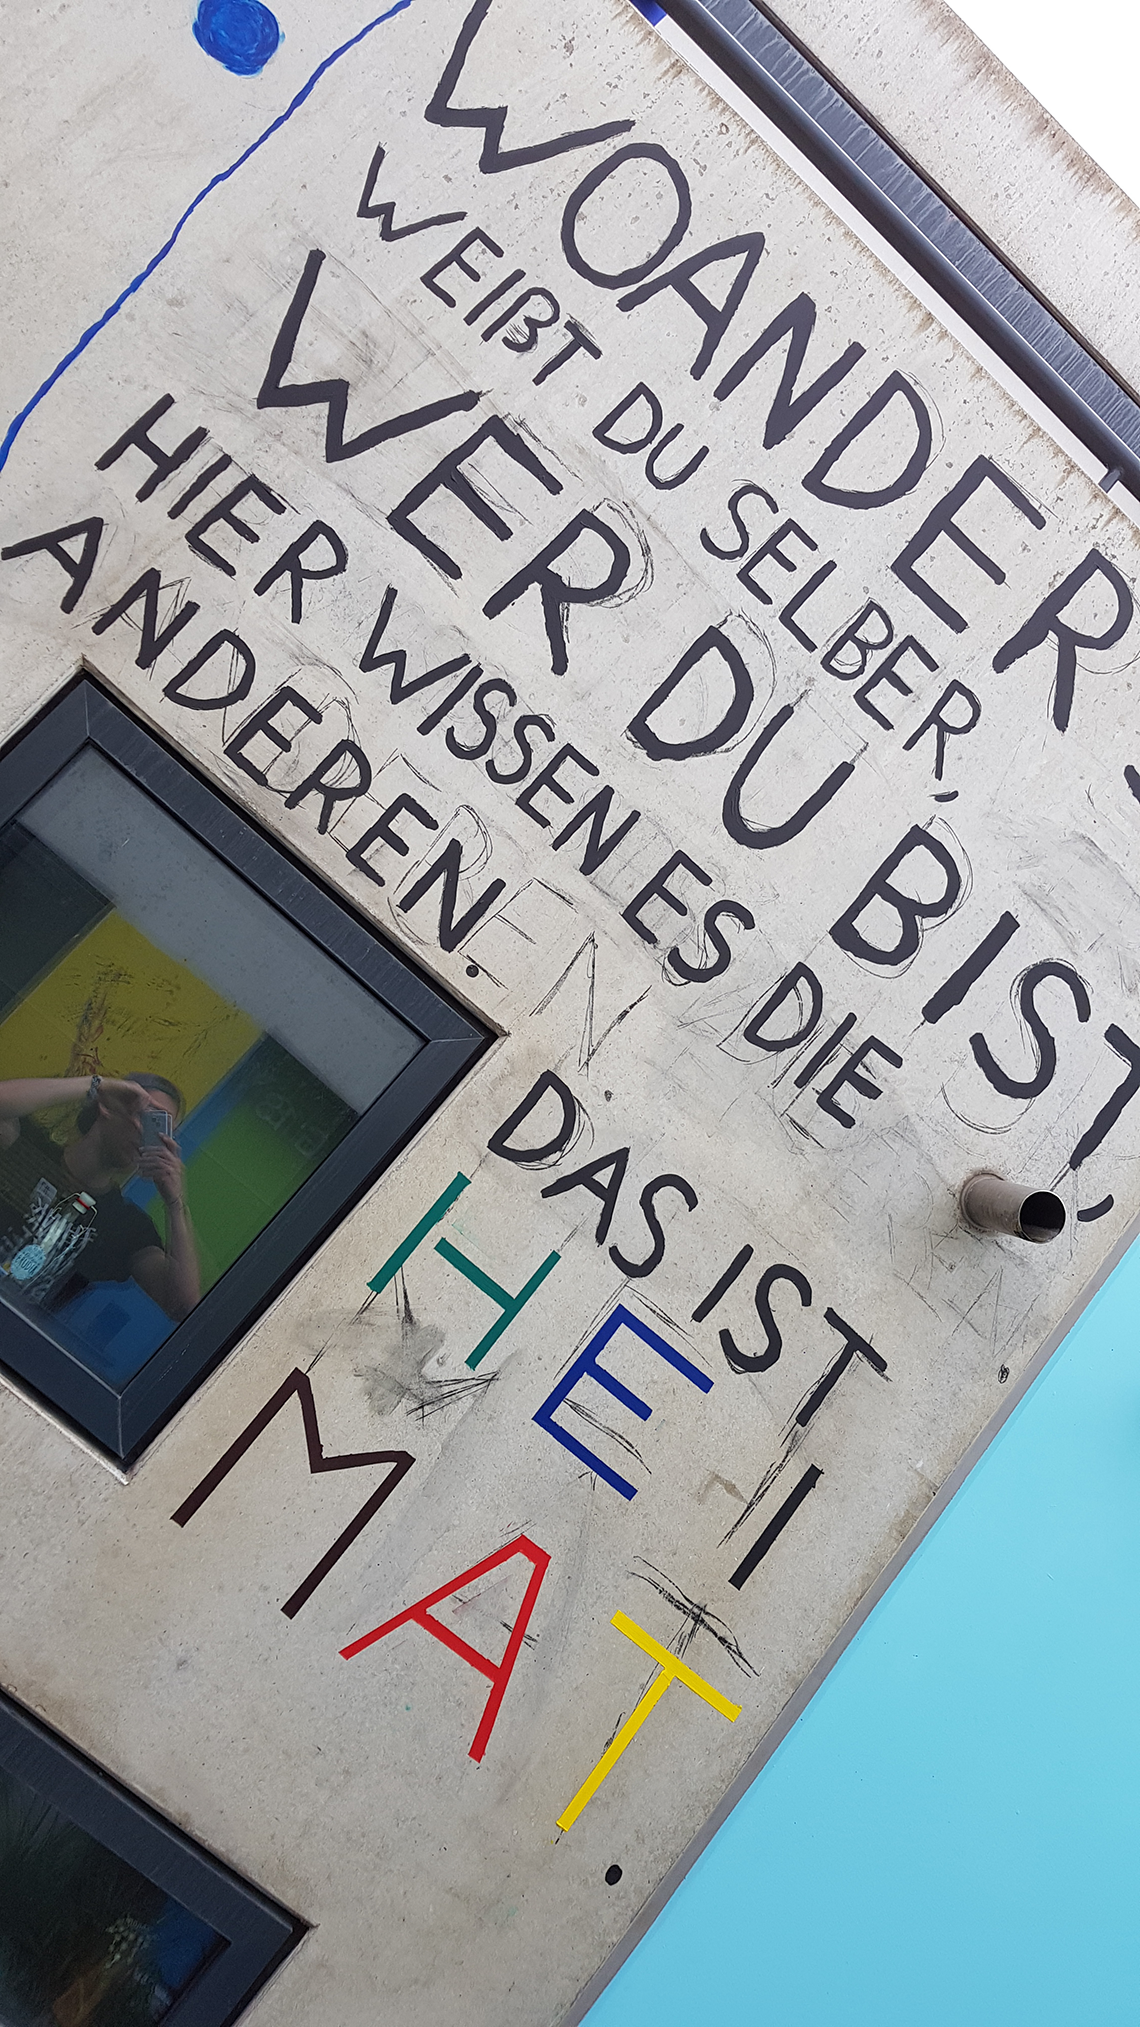 WOANDERS
WEIßT DU SELBER,
WER DU BIST,
HIER WISSEN ES DIE
ANDEREN.
DAS IST
HEI
MAT